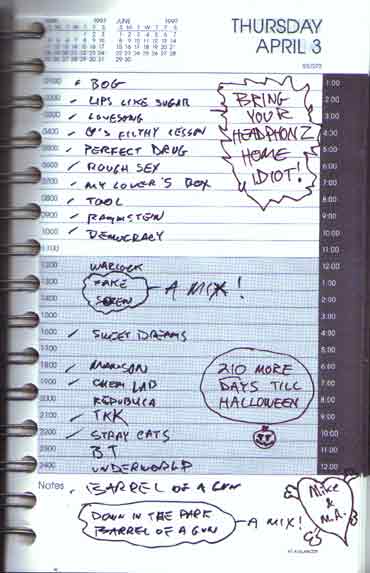 1997 JUNE 1997
THURSDAY
APRIL 3
93/272
BOG
LIPS LIKE SUGAR
LOVESONG
FILTHY LESSON
PERFECT DRUG
ROUGH SEX
MY LOVER'S BOX
TOOL
RAMMSTEIN
DEMOCRACY
BRING
YOUR
HEADPHONZ
HOME
IDIOT!
WARLOCK
FAKE
- A MIX!
SWEET DREAMS
MANSON
CHEM LAB
REPUBLICA
TKK
STRAY CATS
BT
UNDERWORLD
210 MORE
DAYS TILL
HALLOWEEN
0200
0300
0400
0500
0600
0700
0800
0900
1000
1100
1200
1300
1400
1600
1800
1900
2000
2100
2200
2300
2400
1:00
2:00
3:00
4:00
5:00
6:00
7:00
8:00
9:00
10:00
11:00
12:00
1:00
2:00
3:00
4:00
5:00
6:00
7:00
8:00
9:00
10:00
11:00
12:00
Notes
BARREL OF A GUN
DOWN IN THE PARK
BARREL OF A GUN
- A MIX!
Mike
&
M.A.
AT-A-GLANCE